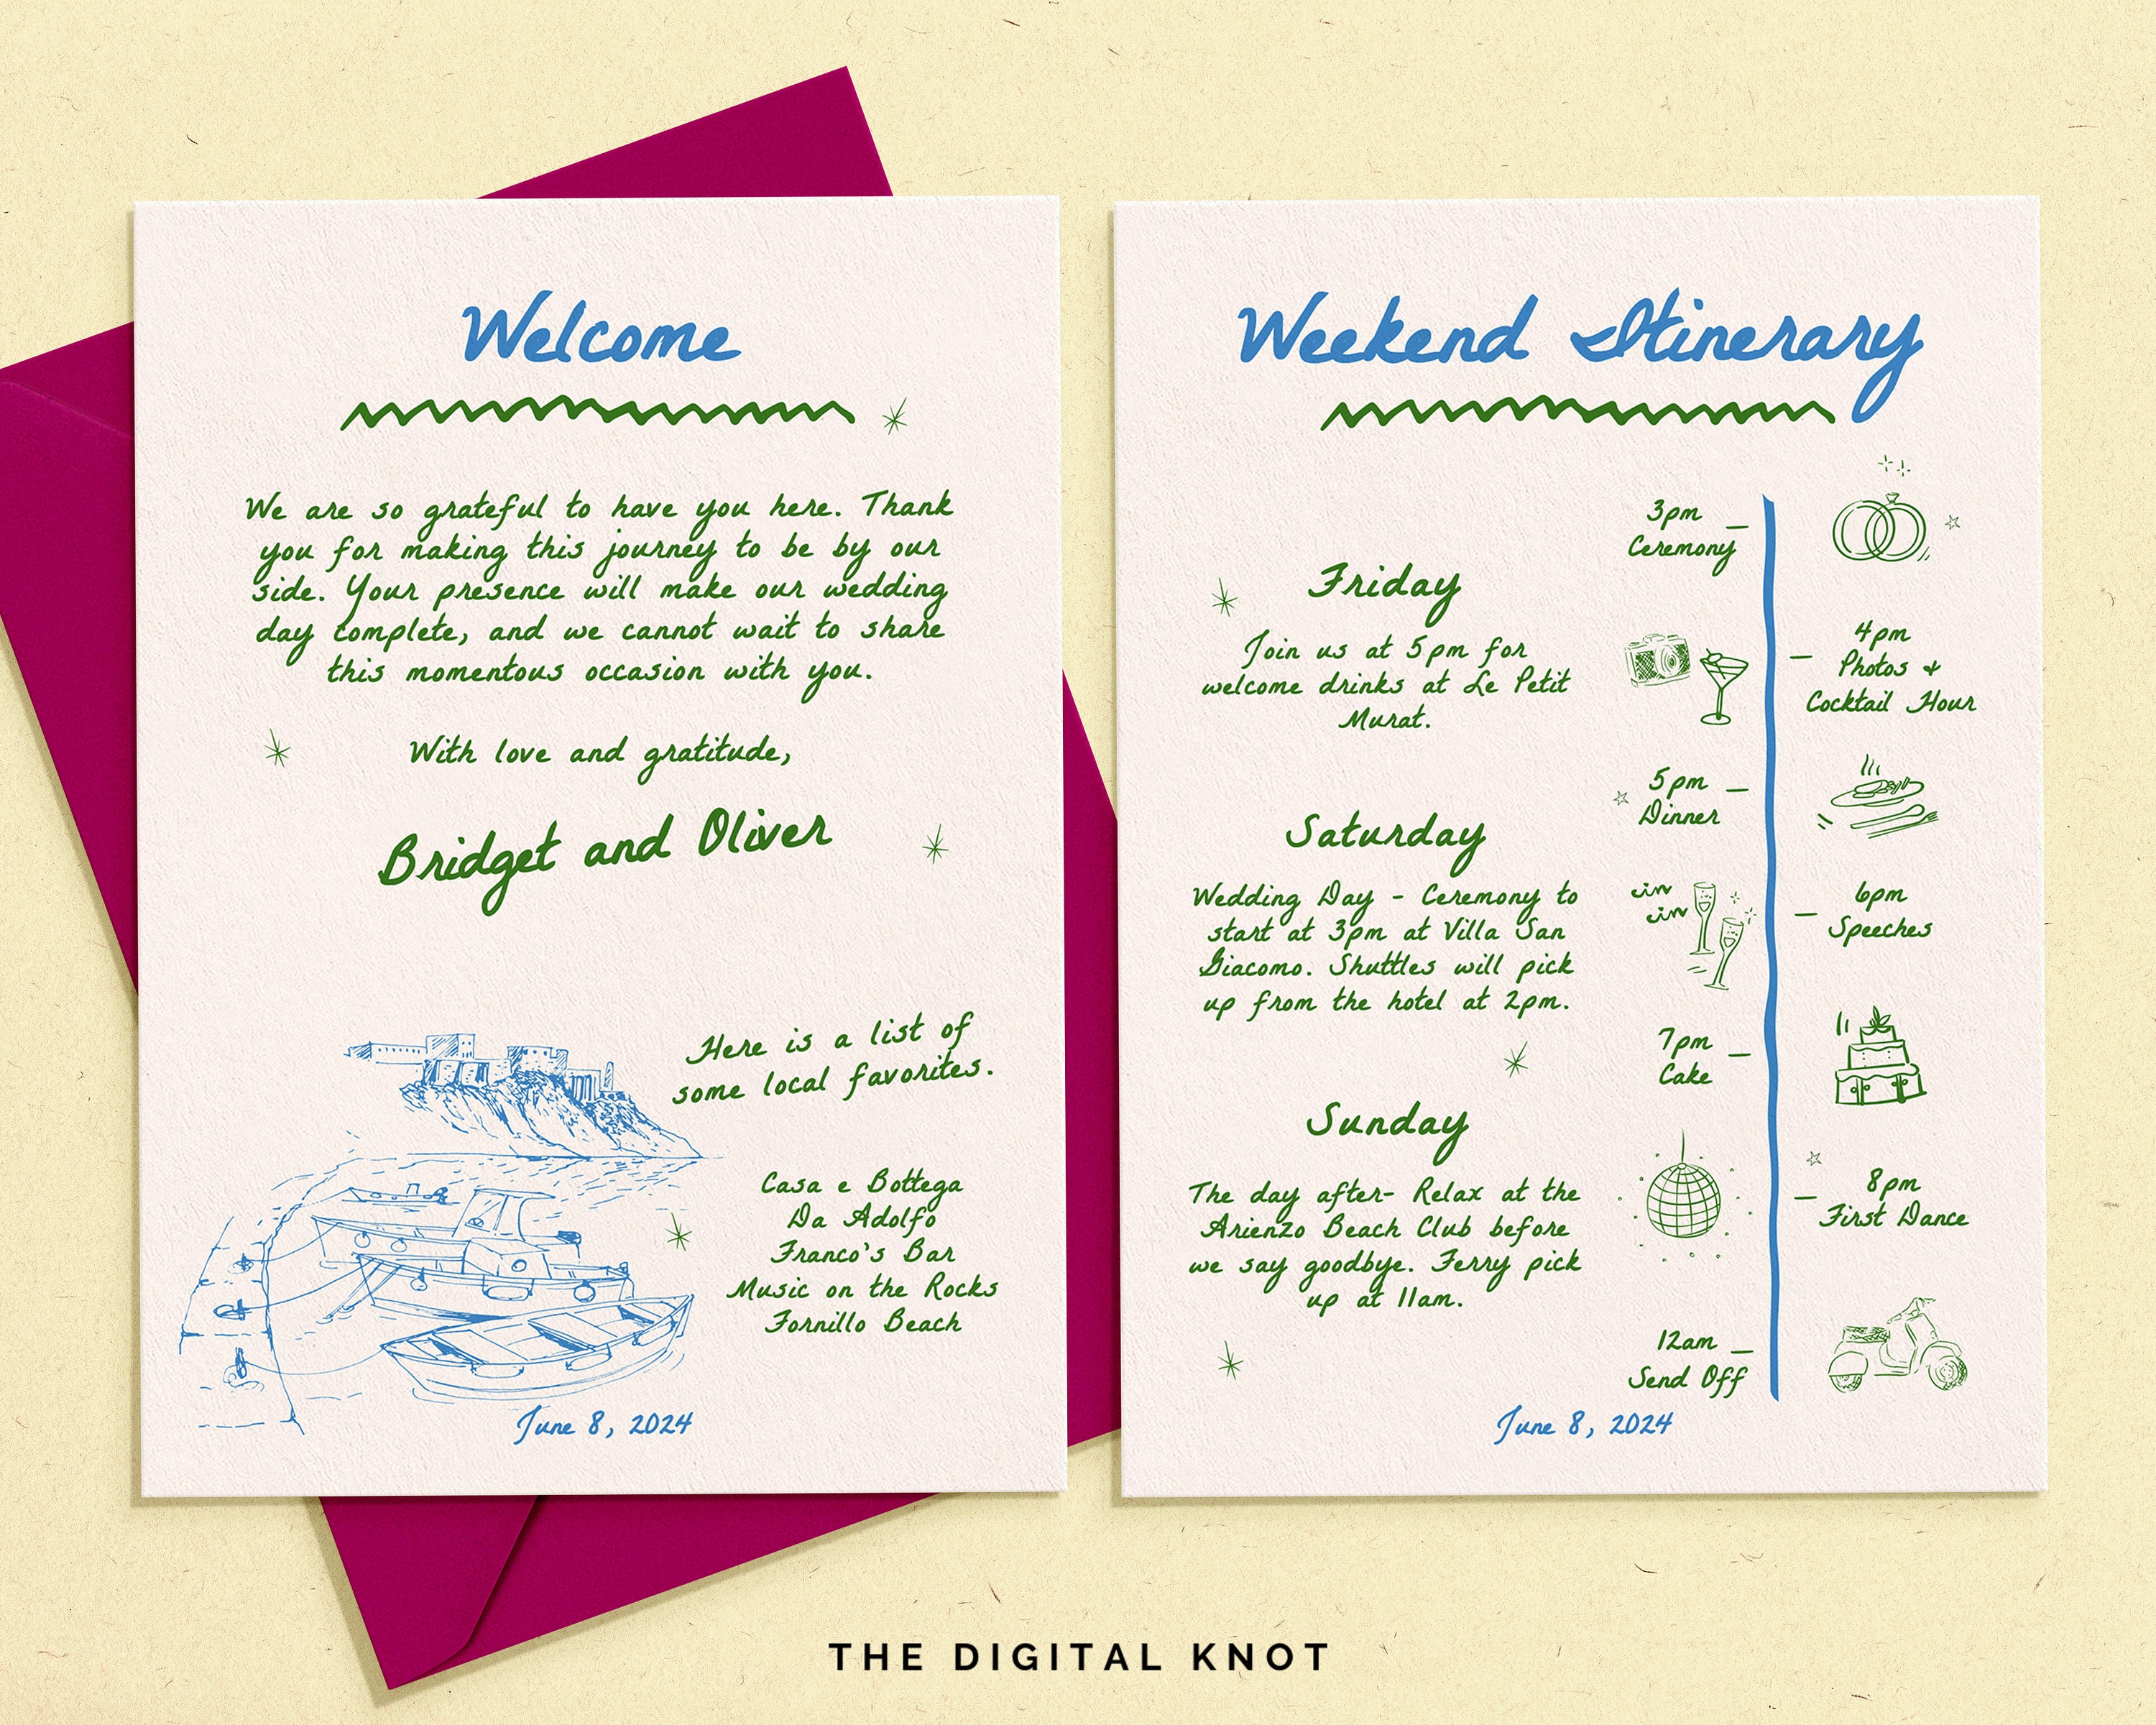 Welcome
We are so grateful to have you here. Thank
you for making this journey to be by our
side. Your presence will make our wedding
day complete, and we cannot wait to share
this momentous occasion with you.
With love and gratitude,
Bridget and Oliver
Here is a list of
some local favorites.
Casa e Bottega
Da Adolfo
Franco's Bar
Music on the Rocks
Fornillo Beach
June 8, 2024
Weekend Itinerary
Friday
Join us at 5pm for
welcome drinks at Le Petit
Murat.
Saturday
Wedding Day - Ceremony to
start at 3pm at Villa San
Giacomo. Shuttles will pick
up from the hotel at 2pm.
Sunday
The day after- Relax at the
Arienzo Beach Club before
we say goodbye. Ferry pick
up at 11am.
3pm
Ceremony
4pm
Photos &
Cocktail Hour
5pm
Dinner
cin
cin
6pm
Speeches
7pm
Cake
8pm
First Dance
12am
Send Off
June 8, 2024
THE DIGITAL KNOT